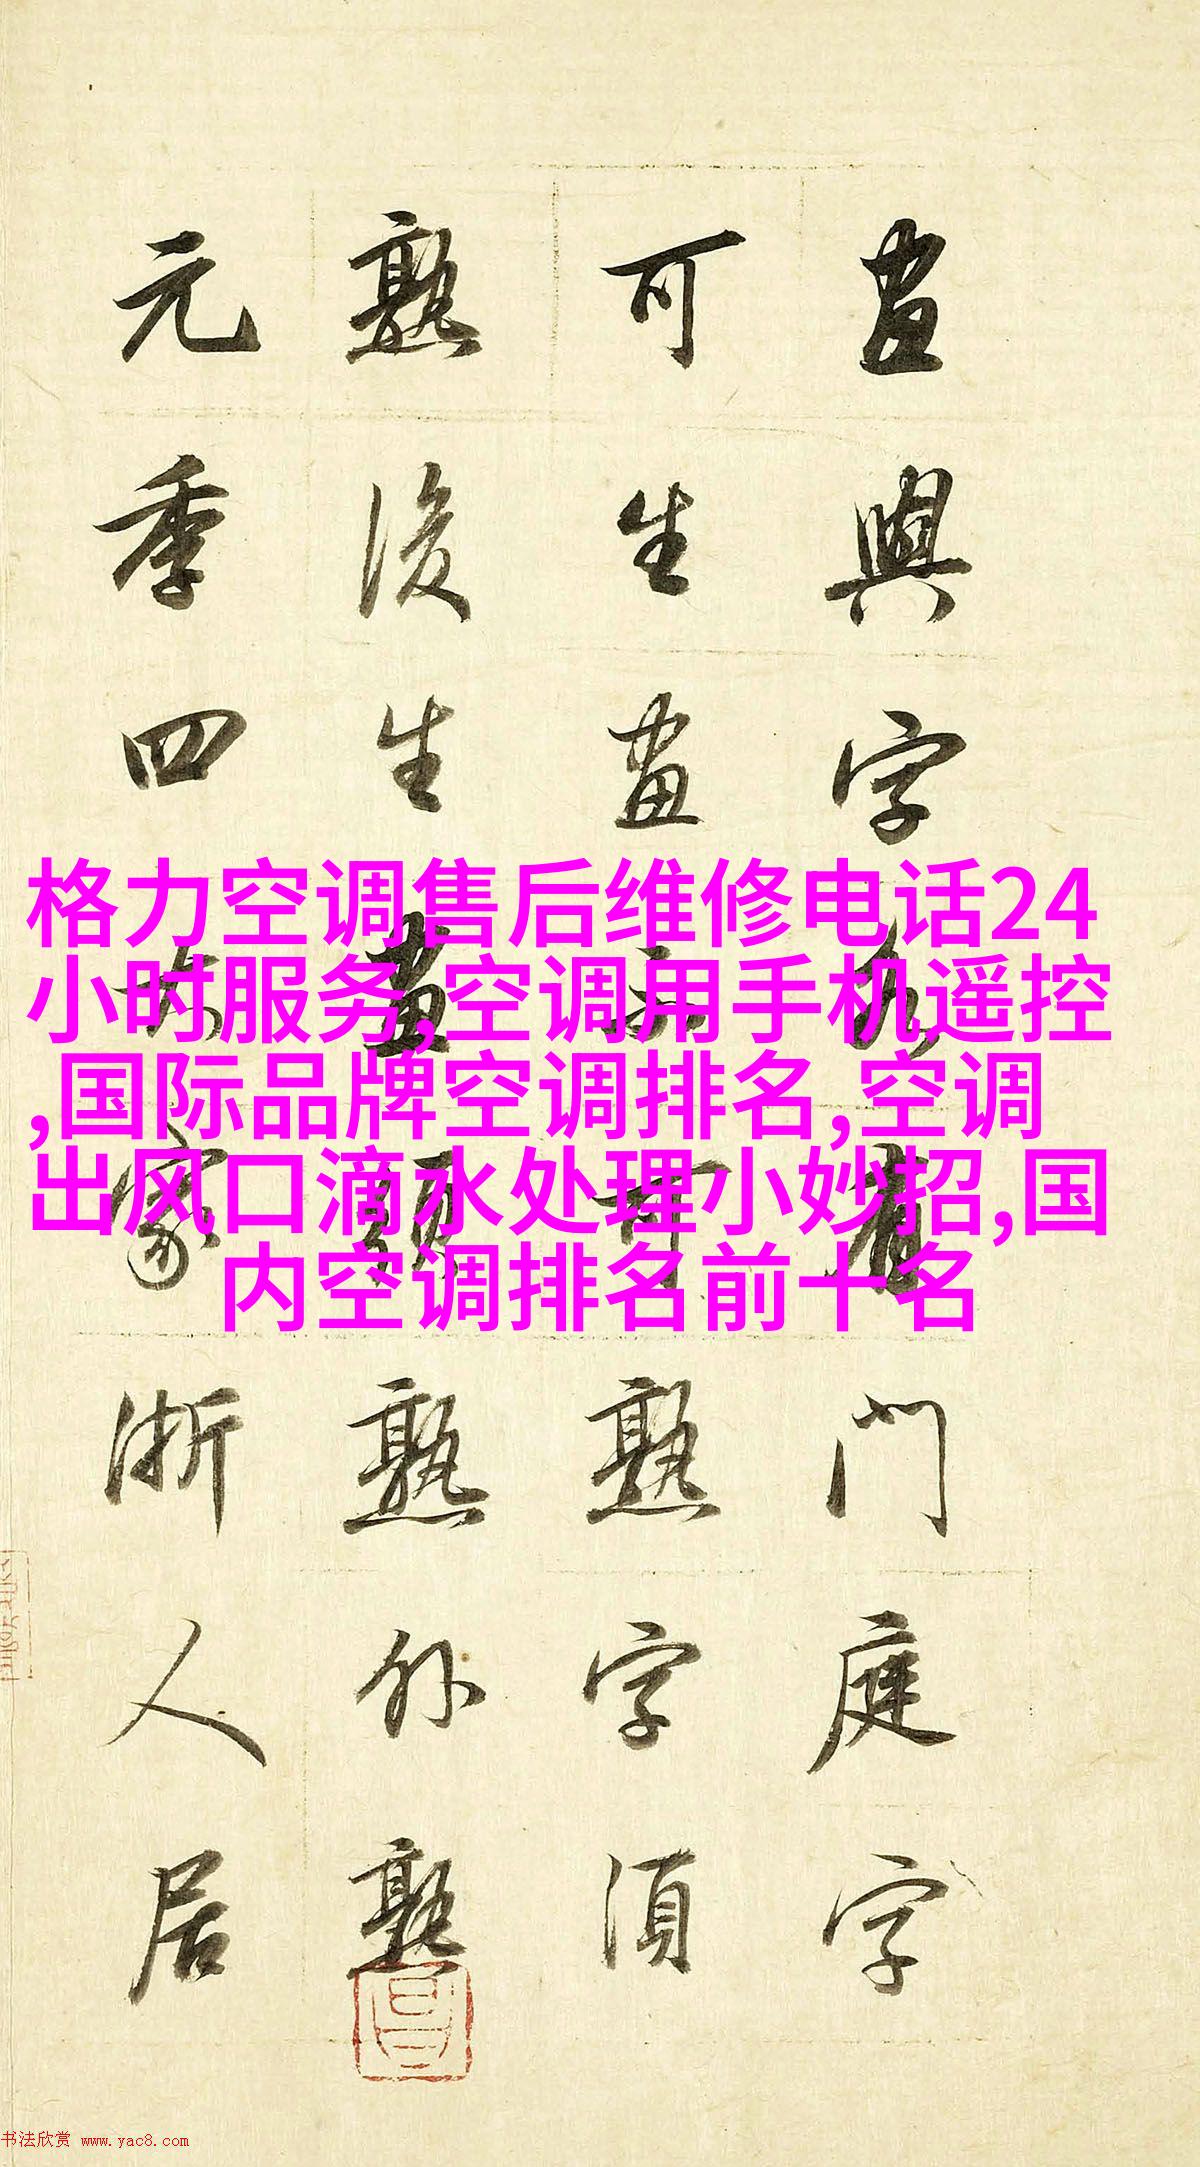 畫與字各有門庭字
可生畫不可熟字須
熟後生畫須熟外熟
元季四大家浙人居
格力空调售后维修电话24
小时服务,空调用手机遥控
,国际品牌空调排名,空调
出风口滴水处理小妙招,国
内空调排名前十名
书法欣赏 www.yac8.com